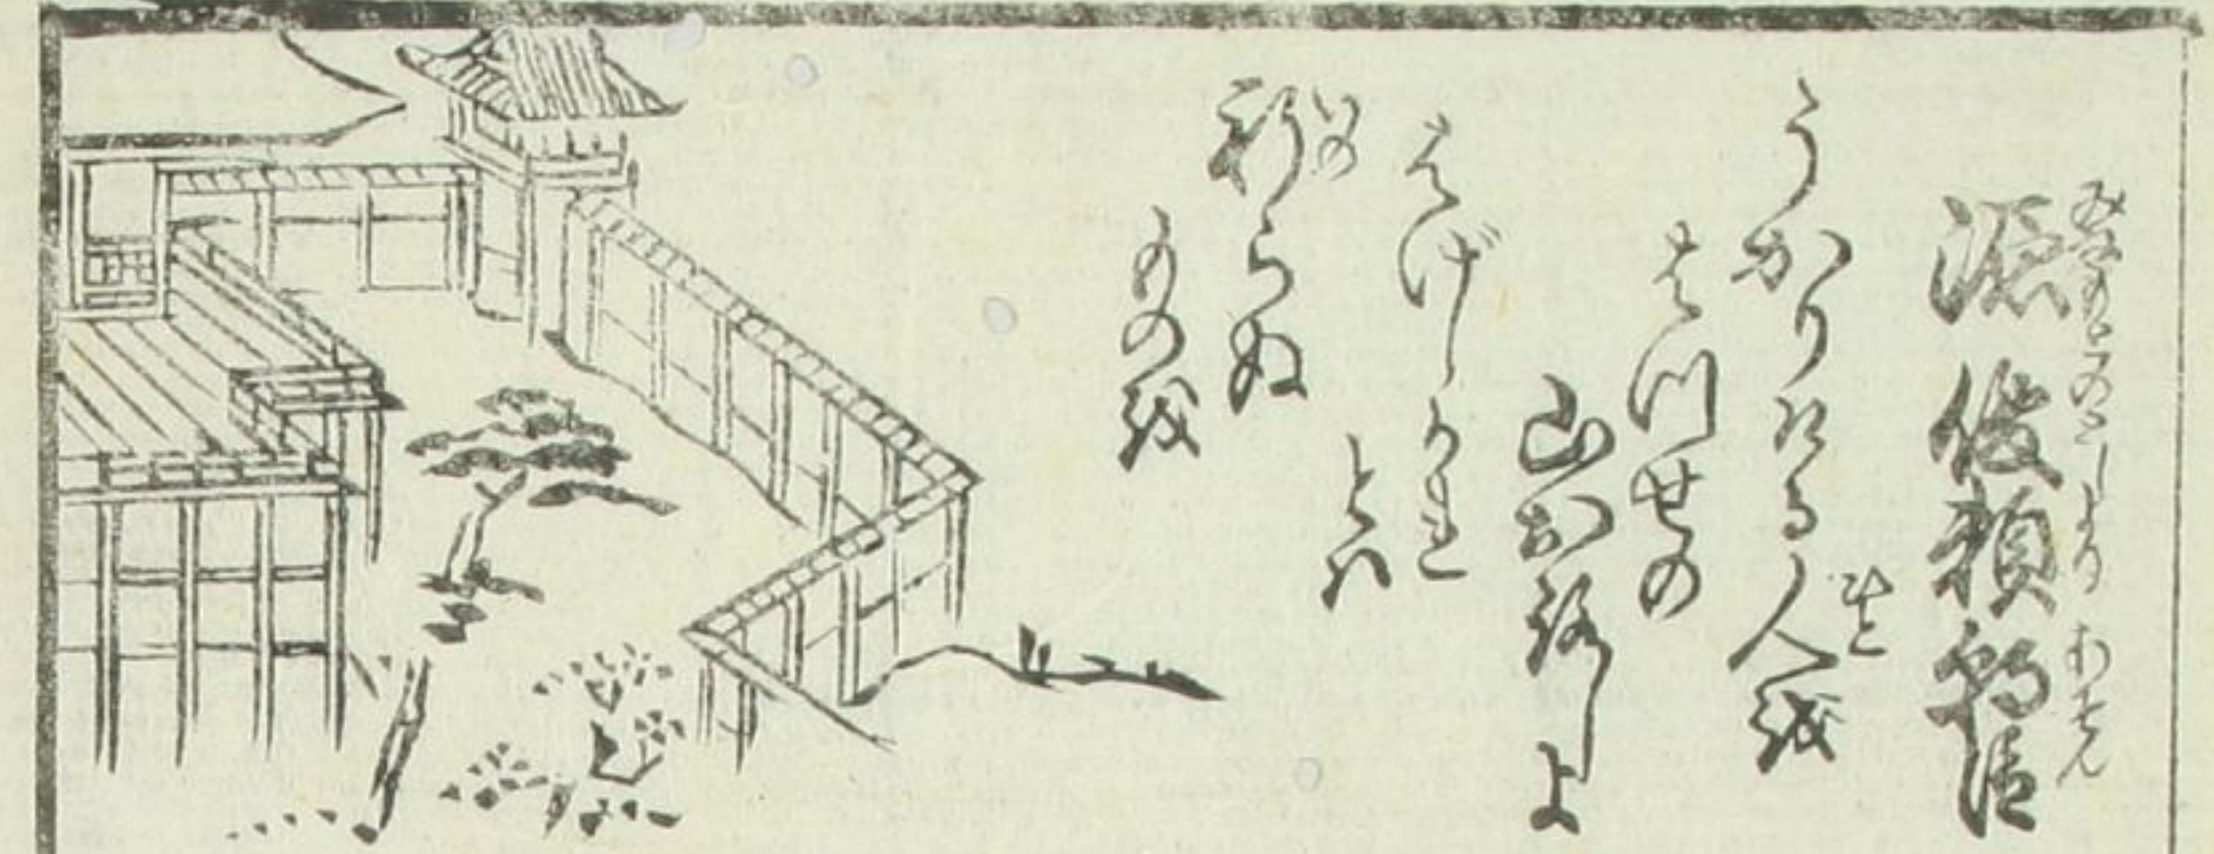 みなもとのとしより あそん
源俊頼朝臣
ひと
うかりける人を
はつせの
山おろしよ
はげしかれ
とは
いの
祈らぬ
ものを